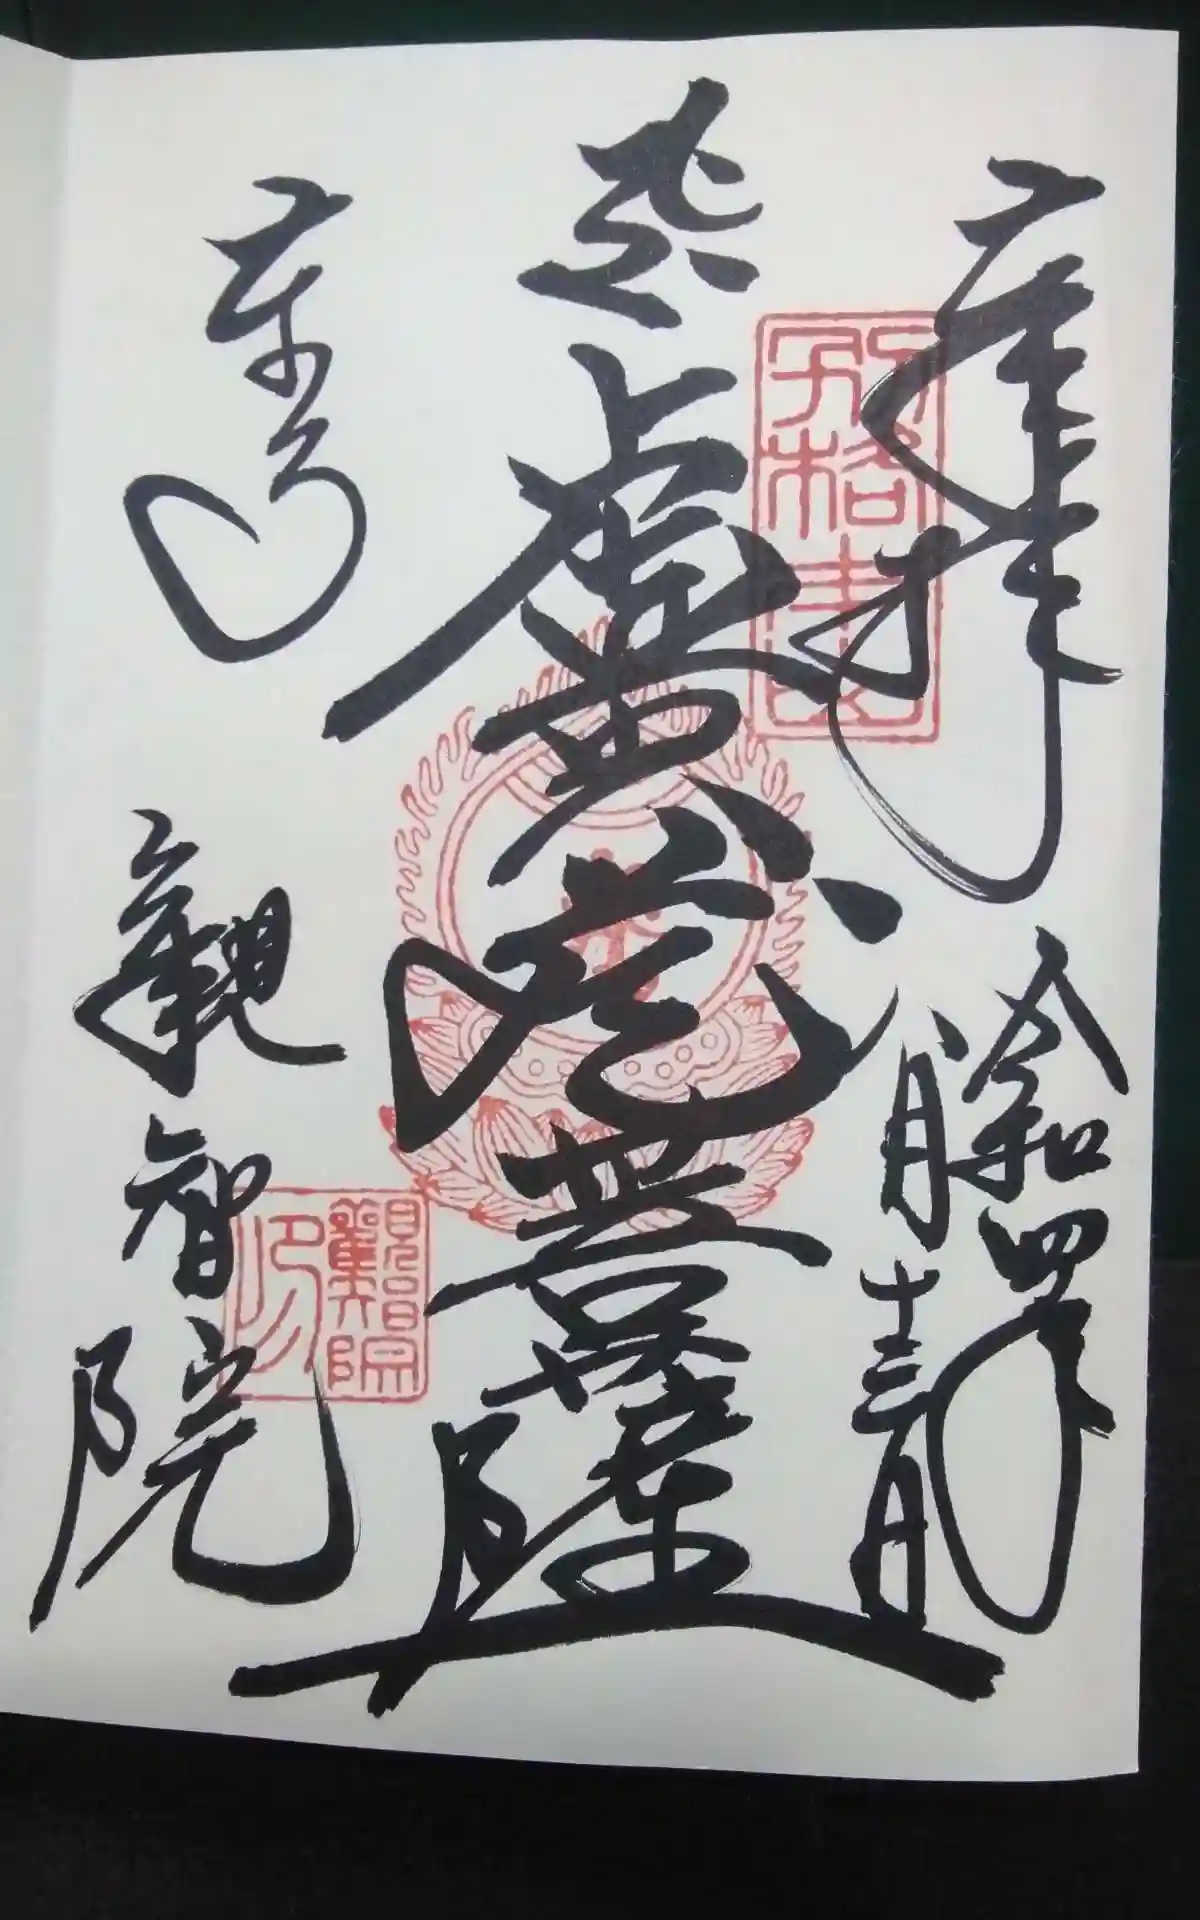 奉拝
令和四年
八月十三日
虚空蔵菩薩
東寺
観智院
別格本山
観智院印